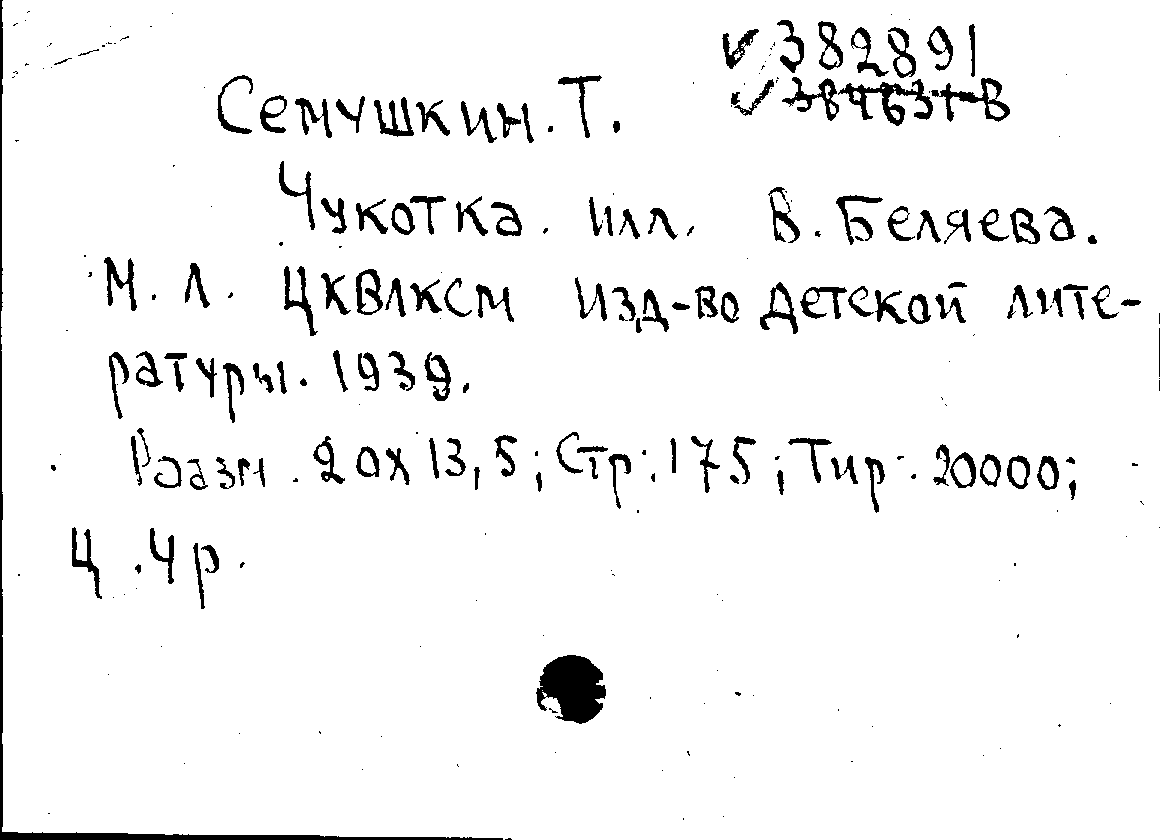 ✓ 382891
✓ 384631-В
Семушкин. Т.
Чукотка. илл. В. Беляева.
М. Л. ЦКВЛКСМ Изд-во Детской лите-
ратуры. 1939.
Раазм. 20х13,5; Стр: 175; Тир: 20000;
Ц. 4 р.